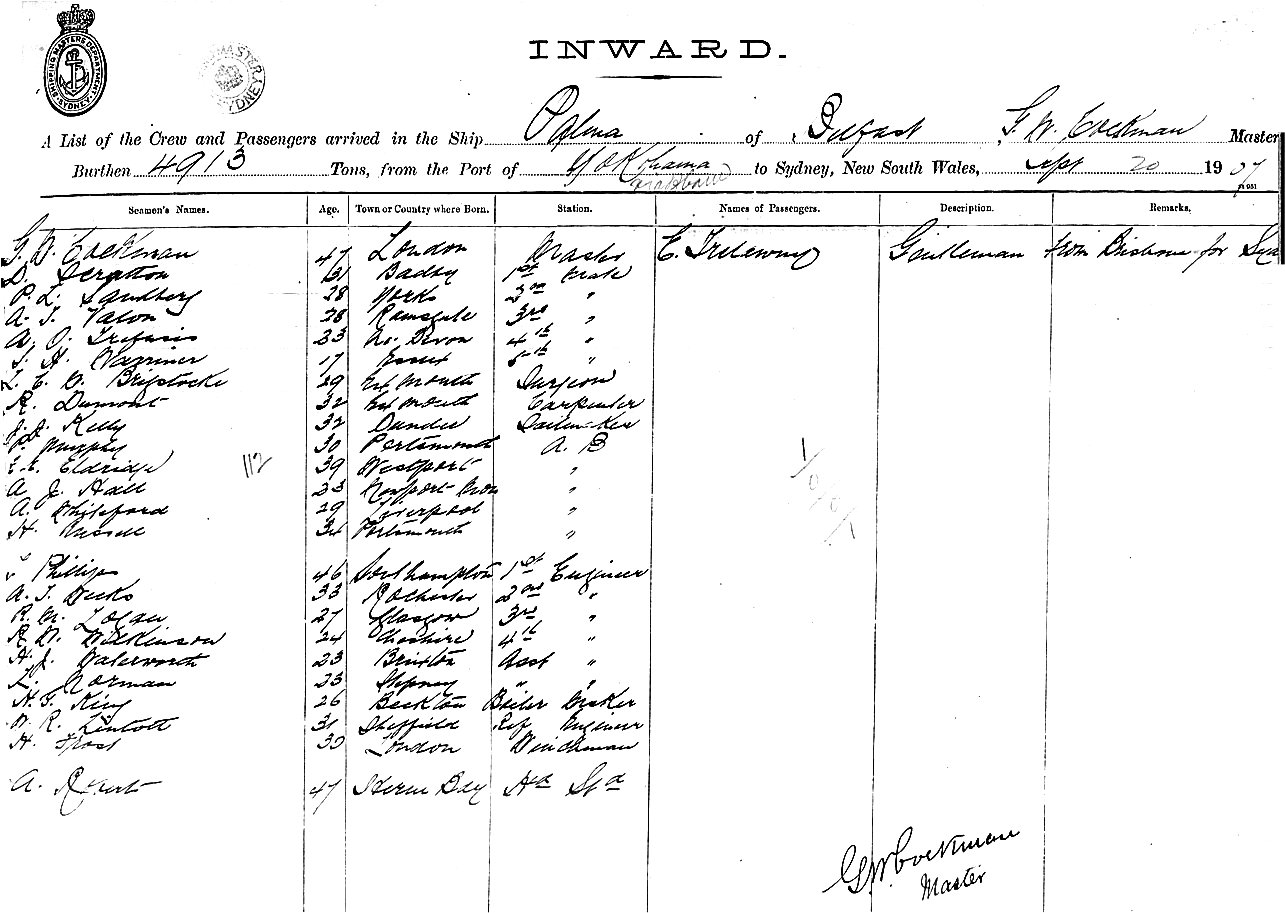 SHIPPING MASTERS DEPARTMENT SYDNEY
INWARD.
A List of the Crew and Passengers arrived in the Ship Palma of Belfast G. W. Cockman Master
Burthen 4913 Tons, from the Port of Yokohama to Sydney, New South Wales, Sept 20 1907
Seamen's Names. Age. Town or Country where Born. Station. Names of Passengers. Description. Remarks.
G. W. Cockman 47 London Master Gentleman from Brisbane for Syd
D. Scratton 31 Badby 1st Mate
P. L. Sandberg 28 Yorks 2nd "
A. J. 28 Ramsgate 3rd "
A. O. Trefusis 23 No. Devon 4th "
H. Warriner 17 Essex 5th "
Brigstocke 29 Exmouth Surgeon
R. Dumont 32 Exmouth Carpenter
J. J. Kelly 32 Dundee
Murphy 30 Portsmouth A. B
Eldridge 39 Westport "
112
A J. Hall 23 Newport Mon "
A. Whiteford 29 Liverpool "
H. Russell 34 Portsmouth "
Phillips 46 Southampton 1st Engineer
A. J. 33 Rochester 2nd "
R. M. Logan 27 Glasgow 3rd "
R. W. Wilkinson 24 Cheshire 4th "
H. J. 23 Brixton Asst "
L. Norman 23 Stepney " "
King 26 Beckton Boiler
W. R. Lintott 31 Sheffield Ref Engineer
H. 30 London Winchman
A. 47 Herne Bay
G W Cockman
Master